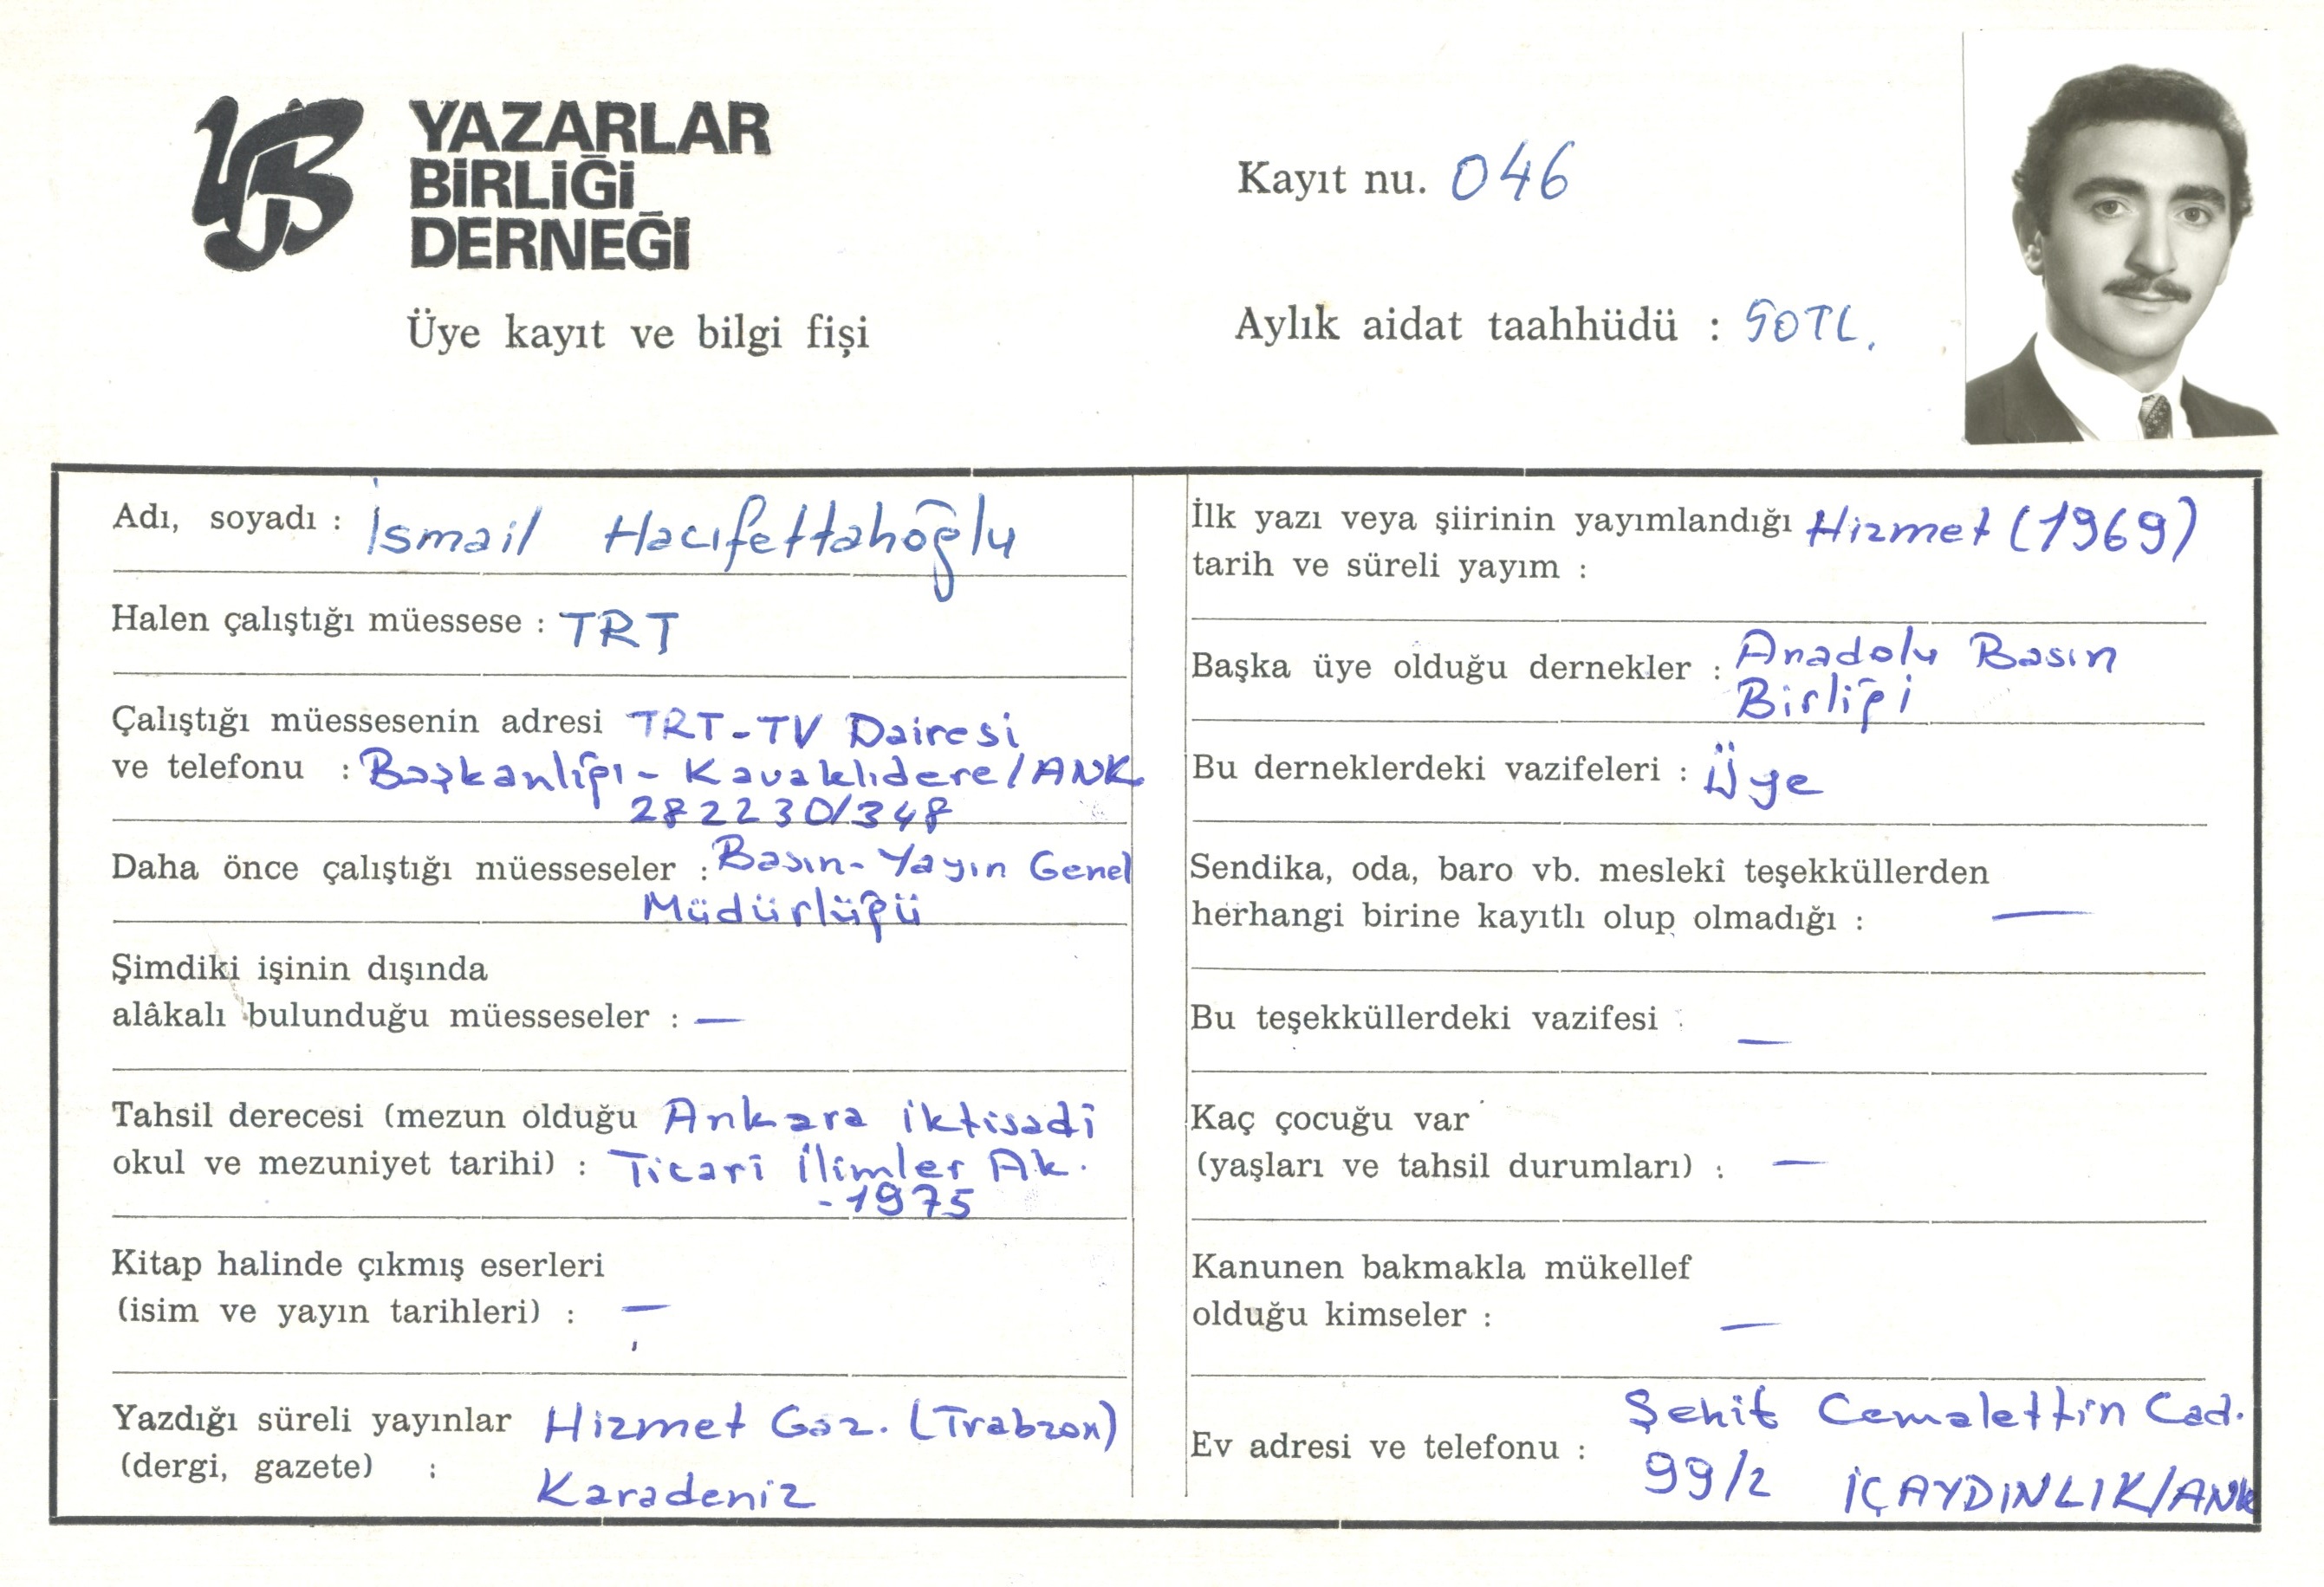 YAZARLAR
BİRLİĞİ
DERNEĞİ
Üye kayıt ve bilgi fişi
Kayıt nu. 046
Aylık aidat taahhüdü : 50TL.
Adı, soyadı : İsmail Hacıfettahoğlu
Halen çalıştığı müessese : TRT
Çalıştığı müessesenin adresi TRT-TV Dairesi
ve telefonu : Başkanlığı - Kavaklıdere/ANK
282230/348
Daha önce çalıştığı müesseseler : Basın-Yayın Genel
Müdürlüğü
Şimdiki işinin dışında
alâkalı bulunduğu müesseseler : —
Tahsil derecesi (mezun olduğu Ankara İktisadî
okul ve mezuniyet tarihi) : Ticarî İlimler Ak.
-1975
Kitap halinde çıkmış eserleri
(isim ve yayın tarihleri) : —
Yazdığı süreli yayınlar Hizmet Gaz. (Trabzon)
(dergi, gazete) :
Karadeniz
İlk yazı veya şiirinin yayımlandığı Hizmet (1969)
tarih ve süreli yayım :
Başka üye olduğu dernekler : Anadolu Basın
Birliği
Bu derneklerdeki vazifeleri : Üye
Sendika, oda, baro vb. meslekî teşekküllerden
herhangi birine kayıtlı olup olmadığı : —
Bu teşekküllerdeki vazifesi : —
Kaç çocuğu var
(yaşları ve tahsil durumları) : —
Kanunen bakmakla mükellef
olduğu kimseler : —
Şehit Cemalettin Cad.
Ev adresi ve telefonu :
99/2 İÇAYDINLIK/ANK